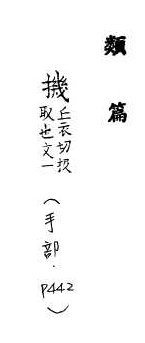 類篇
丘衣切投
取也文一
(手部.P442)